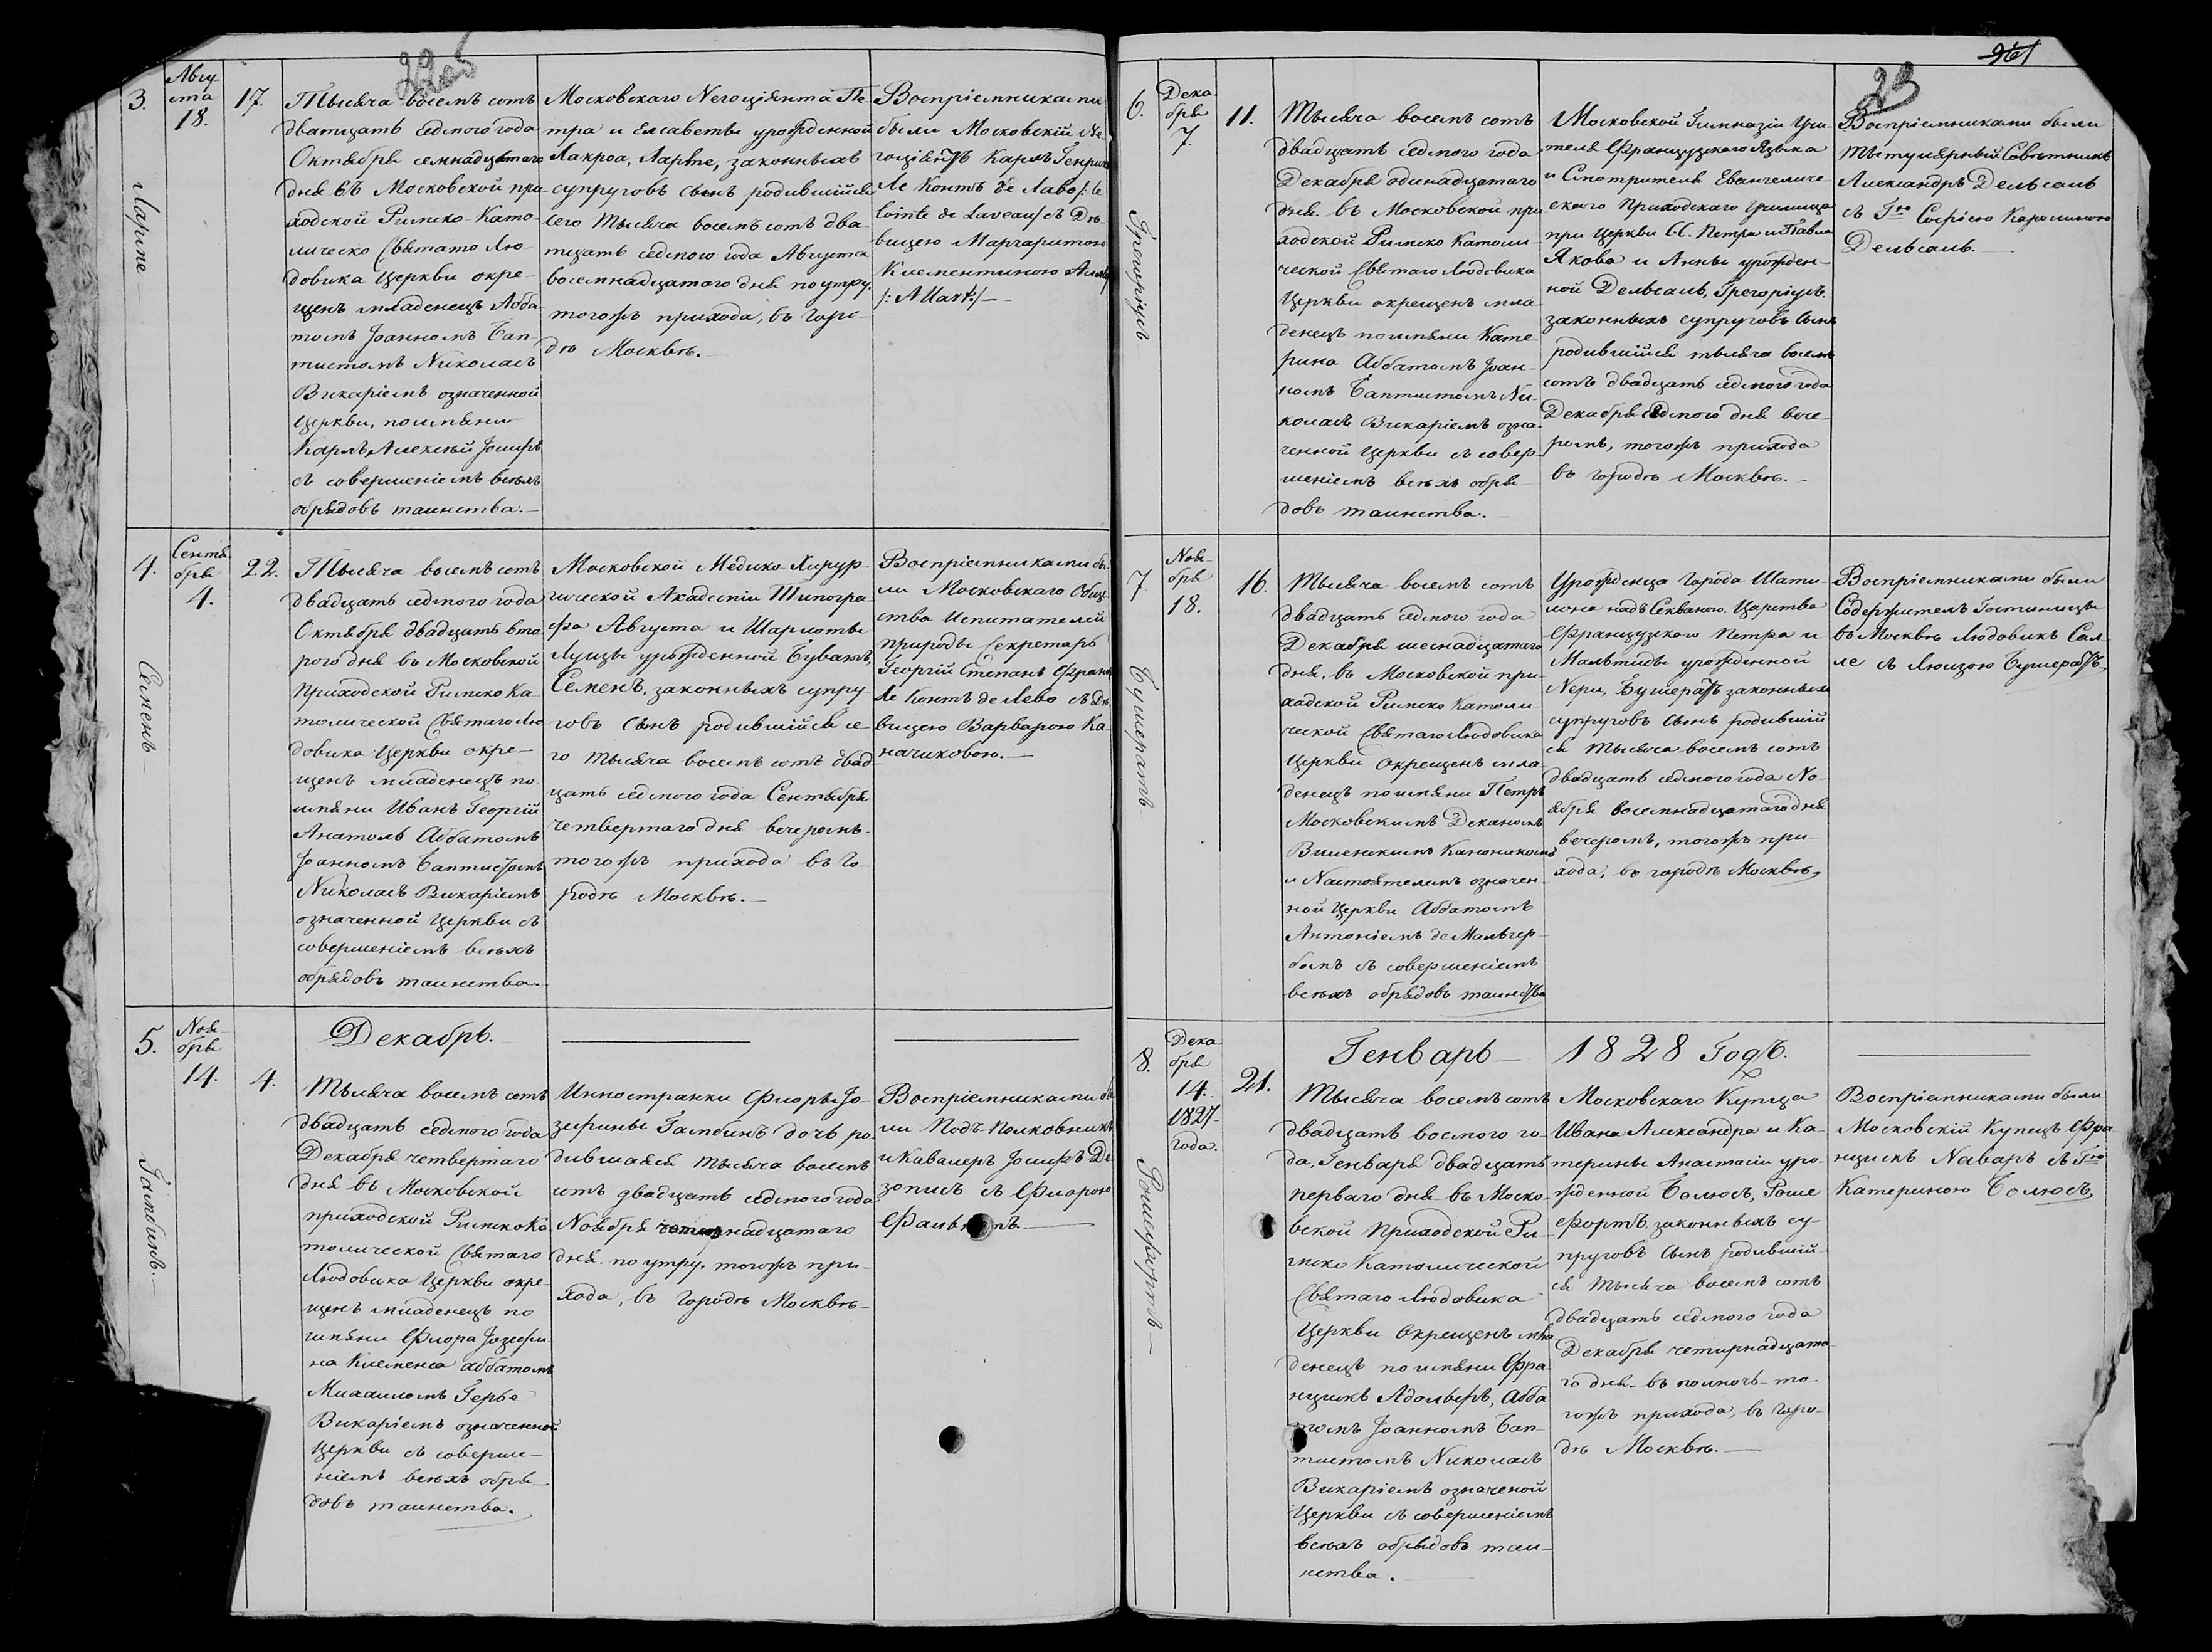 22об
3.
Ларме
Авгу
ста
18.
17.
Тысяча восемъ сотъ
дватцать седмого года
Октября семнадцатаго
дня въ Московской при
ходской Римско-Като-
лическо Святато Лю-
довика Церкви окре-
щенъ младенецъ Абба
томъ Јоанномъ Бап
тистомъ Николасъ
Викаріемъ означенной
Церкви, поимяни
Карлъ Алексѣй Јосифъ
съ совершеніемъ всѣхъ
обрядовъ таинства.—
Московскаго Негоціянта Пе
тра и Елисаветы урожденной
Лакроа, Ларме, законныхъ
супруговъ сынъ родившійся
сего Тысяча восемъ сотъ два
тцать седмого года Августа
восемнадцатаго дня по утру.
тогожъ прихода, въ Горо-
дѣ Москвѣ.—
Воспріемниками
были Московскій Не
гоціянтъ Карлъ Генрихъ
Ле Контъ де Лаво /: le
Cointe de Laveau/ съ Дѣ-
вицею Маргаритою
Клементиною
/: Allart:/ —
4.
Семенъ
Сентя
бря
4.
22.
Тысяча восемъ сотъ
двадцать седмого года
Октября двадцать вто
рого дня въ Московской
приходской Римско Ка-
толической Святаго Лю
довика Церкви окре-
щенъ младенецъ по
имяни Иванъ Георгій
Анатоль Аббатомъ
Јоанномъ Баптистомъ
Николасъ Викаріемъ
означенной Церкви съ
совершеніемъ всѣхъ
обрядовъ таинства.
Московской Медико-Хирур-
гической Академіи Типогра-
фа Августа и Шарлоты
Луизы урожденной Буватъ,
Семенъ, законныхъ супру
говъ сынъ родившійся се-
го тысяча восемъ сотъ двад
цать седмого года Сентября
четвертаго дня вечеромъ.
тогожъ прихода въ Го-
родѣ Москвѣ.—
Воспріемниками бы-
ли Московскаго Обще
ства Испытателей
природы Секретарь
Георгій Степанъ Франц
Ле Контъ де Лево съ Дѣ
вицею Варварою Ка-
начиковою.—
5.
Гамбинъ.
Ноя-
бря
14.
4.
Декабрь.
Тысяча восемъ сотъ
двадцать седмого года
Декабря четвертаго
дня въ Московской
приходской Римско Ка
толической Святаго
Людовика Церкви окре-
щенъ младенецъ по
имяни Флора Јозефи-
на Клеменса аббатомъ
Михаиломъ Гербе
Викаріемъ означенной
Церкви съ соверше-
ніемъ всѣхъ обря-
довъ таинства.
Инностранки Флоры Јо-
зефины Гамбинъ дочь ро-
дившаяся тысяча восемъ
сотъ двадцать седмого года
Ноября четырнадцатаго
дня. по утру. тогожъ при-
хода, въ Городѣ Москвѣ.—
Воспріемниками бы
ли Подъ-Полковникъ
и Кавалеръ Јосифъ Де
зописъ съ Флорою
961
23
6.
Грегоріусъ
Дека
бря
7.
11.
Тысяча восемъ сотъ
двадцать седмого года
Декабря одинадцатаго
дня. въ Московской при
ходской Римско Католи
ческой Святаго Людовика
Церкви окрещенъ мла-
денецъ поимяни Кате-
рина Аббатомъ Јоан-
номъ Баптистомъ Ни-
коласъ Викаріемъ озна-
ченной Церкви съ совер-
шеніемъ всѣхъ обря-
довъ таинства.—
Московской Гимназіи Учи-
теля Французскаго Языка
и Смотрителя Евангеличе-
скаго Приходскаго Училища
при Церкви С.С. Петра и Павла
Якова и Анны урожден-
ной Дельсаль, Грегоріусъ.
законныхъ супруговъ сынъ
родившійся тысяча восемъ
сотъ двадцать седмого года
Декабря седмого дня вече-
ромъ, тогожъ прихода
въ городѣ Москвѣ.—
Воспріемниками были
Тытулярный Совѣтникъ
Александръ Дельсаль
съ Гжею Софіею Каролиною
Дельсаль.—
7
Бушератъ
Ноя-
бря
18.
16.
Тысяча восемъ сотъ
двадцать седмого года
Декабря шеснадцатаго
дня. въ Московской при-
ходской Римско Католи-
ческой Святаго Людовика
Церкви окрещенъ мла-
денецъ поимяни Петръ
Московскимъ Деканомъ
Виленскимъ Каноникомъ
и Настоятелемъ означен-
ной Церкви Аббатомъ
Антоніемъ де Мальгер-
бомъ съ совершеніемъ
всѣхъ обрядовъ таинства
Уроженца Города Шати-
лона надъ Секваною. Царства
Французскаго Петра и
Матьтиды урожденной
Нери, Бушератъ законныхъ
супруговъ сынъ родившій
ся тысяча восемъ сотъ
двадцать седмого года Но-
ября восемнадцатаго дня
вечеромъ, тогожъ при-
хода, въ городѣ Москвѣ.
Воспріемниками были
Содержитель Гостиницы
въ Москвѣ Людовикъ Сал-
ле съ Люизою Бушератъ.
8.
Рошефортъ—
Дека
бря
14.
1827-
года.
21.
Генварь— 1828 Годъ.
Тысяча восемъ сотъ
двадцать восмого го-
да, Генваря двадцать
перваго дня въ Моско-
вской Приходской Ри-
мско Католической
Святаго Людовика
Церкви Окрещенъ мла
денецъ по имяни Фра-
нцискъ Адольфъ, Абба
томъ Јоанномъ Бап-
тистомъ Николасъ
Викаріемъ означеной
Церкви съ совершеніемъ
всѣхъ обрядовъ таи-
нства.
Московскаго Купца
Ивана Александра и Ка-
терины Анастасіи уро-
жденной Болюсъ, Роше
фортъ законныхъ су-
пруговъ сынъ родившій-
ся тысяча восемъ сотъ
двадцать седмого года
Декабря четырнадцата-
го дня. въ полночь то-
гожъ прихода, въ горо-
дѣ Москвѣ.—
Воспріемниками были
Московскій Купецъ Фра-
нцискъ Наваръ съ Гжею
Катериною Болюсъ.